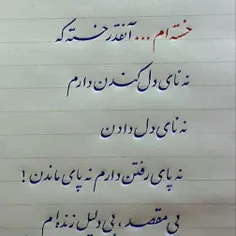 خسته ام ... آنقدر خسته که
نه نای دل کندن دارم
نه نای دل دادن
نه پای رفتن دارم نه پای ماندن !
بی مقصد ، بی دلیل زنده ام